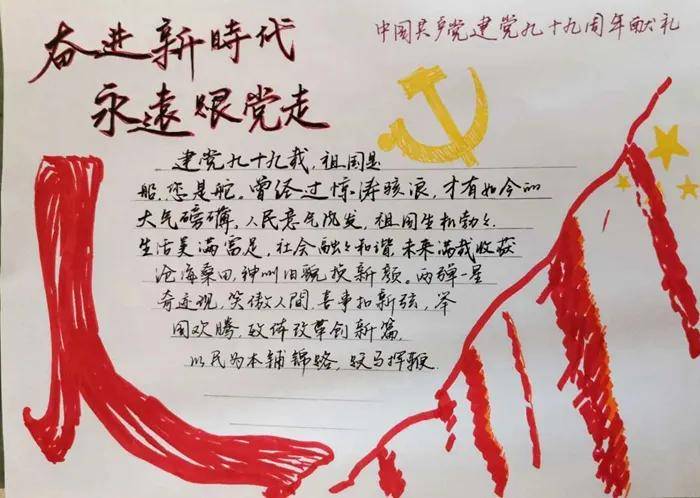 中国共产党建党九十九周年献礼
奋进新時代
永遠跟党走
建党九十九载,祖国是
船,您是舵。曾经过惊涛骇浪,才有如今的
大气磅礴,人民意气风发,祖国生机勃勃.
生活美满富足,社会融々和谐,未来满载收获
沧海桑田,神州旧貌换新颜。两弹一星
奇迹现,笑傲人間,喜事扣新弦,举
国欢腾,政体改革创新篇,
以民为本铺锦路,跃马挥鞭.